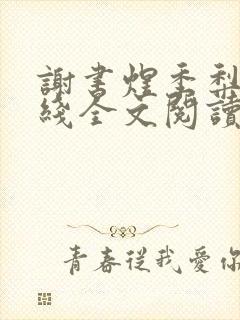 謝書煋季秜
綫全文閱讀
青春從我愛你